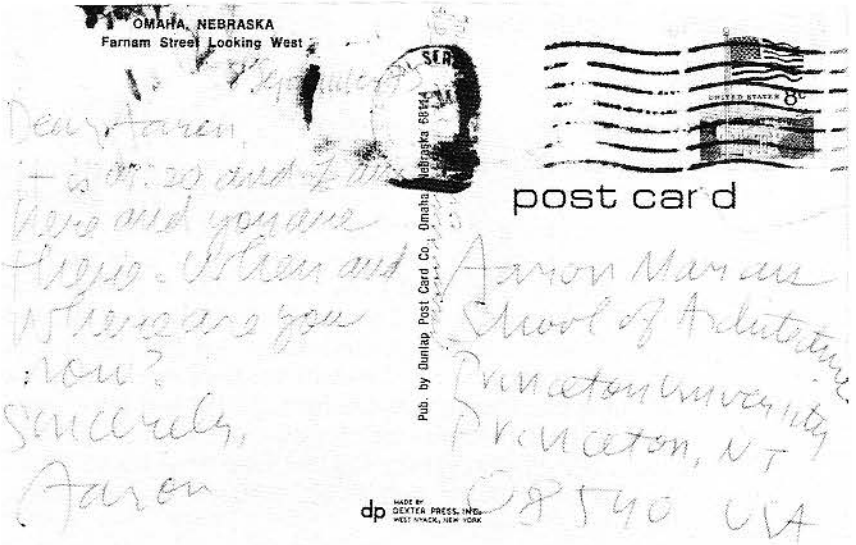 OMAHA, NEBRASKA
Farnam Street Looking West
September
Dear Aaron,
it is 07:20 and I am
here and you are
there. When and
Where are you
now?
Sincerely,
Aaron
Pub. by Dunlap Post Card Co., Omaha, Nebraska 68114
SER
UNITED STATES 8c
post card
Aaron Marcus
School of Architecture
Princeton University
Princeton, NJ
08540 USA
dp
MADE BY
DEXTER PRESS, INC.
WEST NYACK, NEW YORK